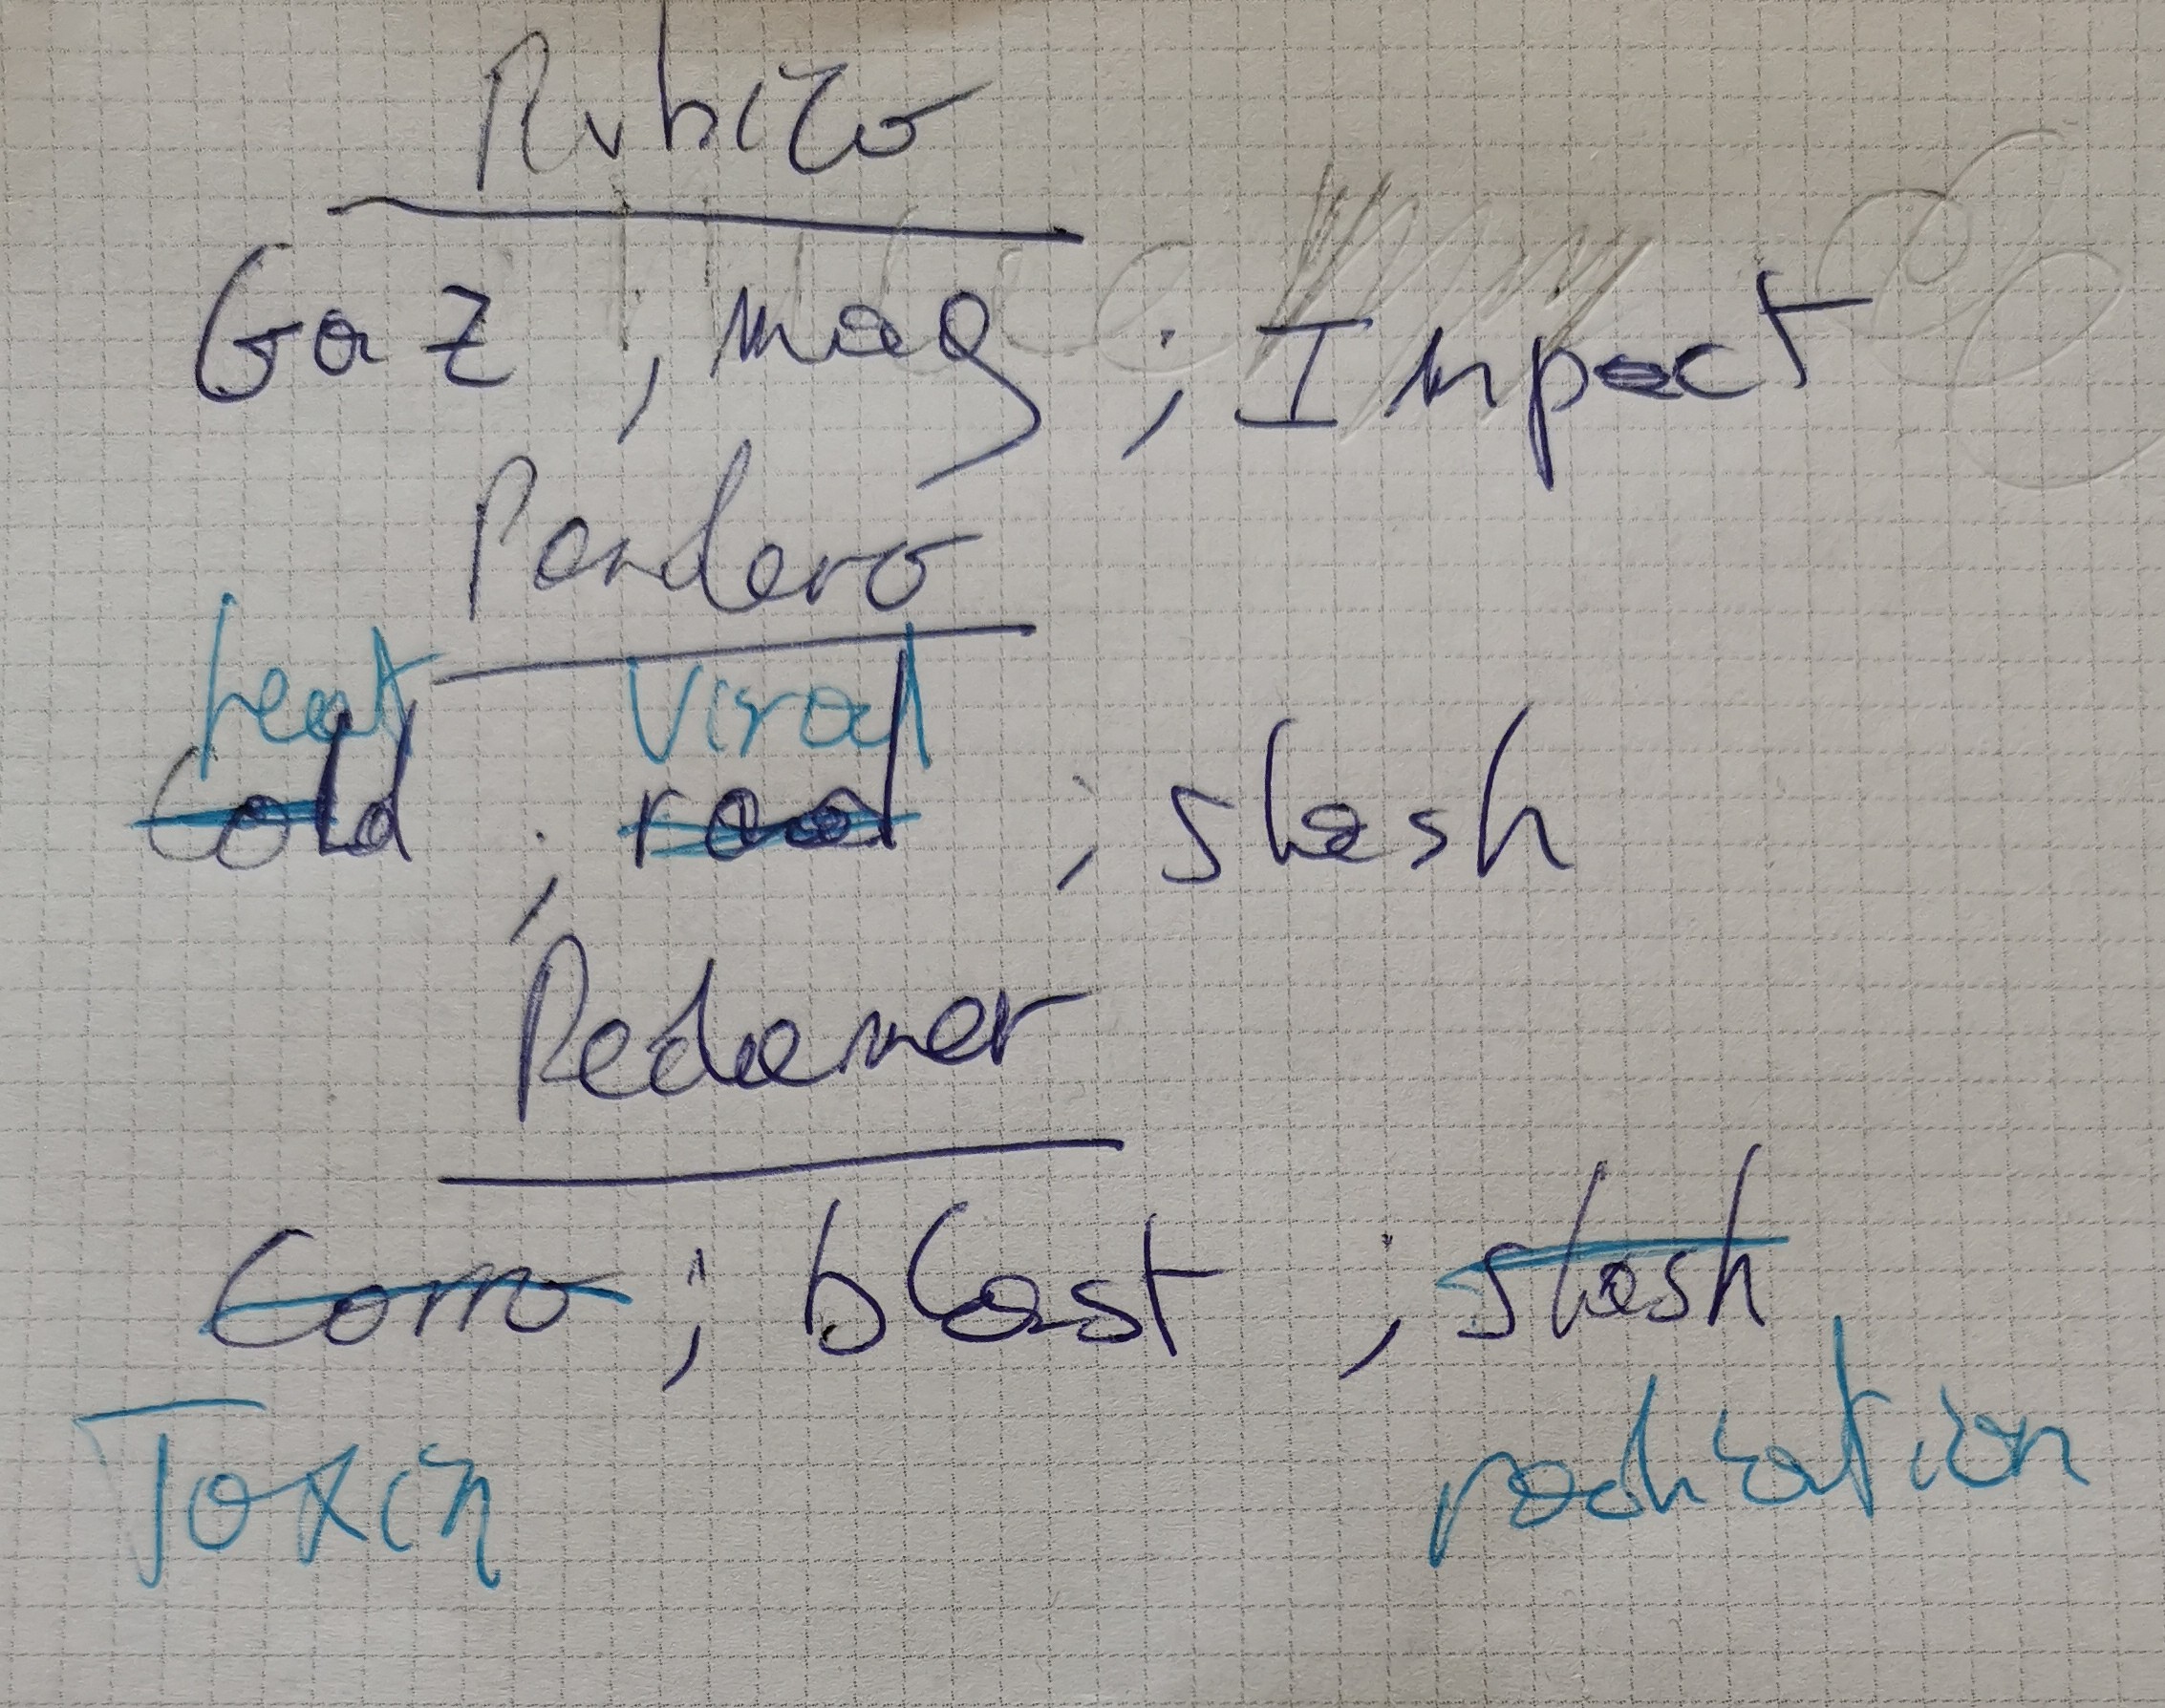 Rubico
Gaz ; mag ; Impact
Pandero
heat Viral
Cold ; rad ; slash
Redeemer
Corro ; blast ; slash
Toxin radiation